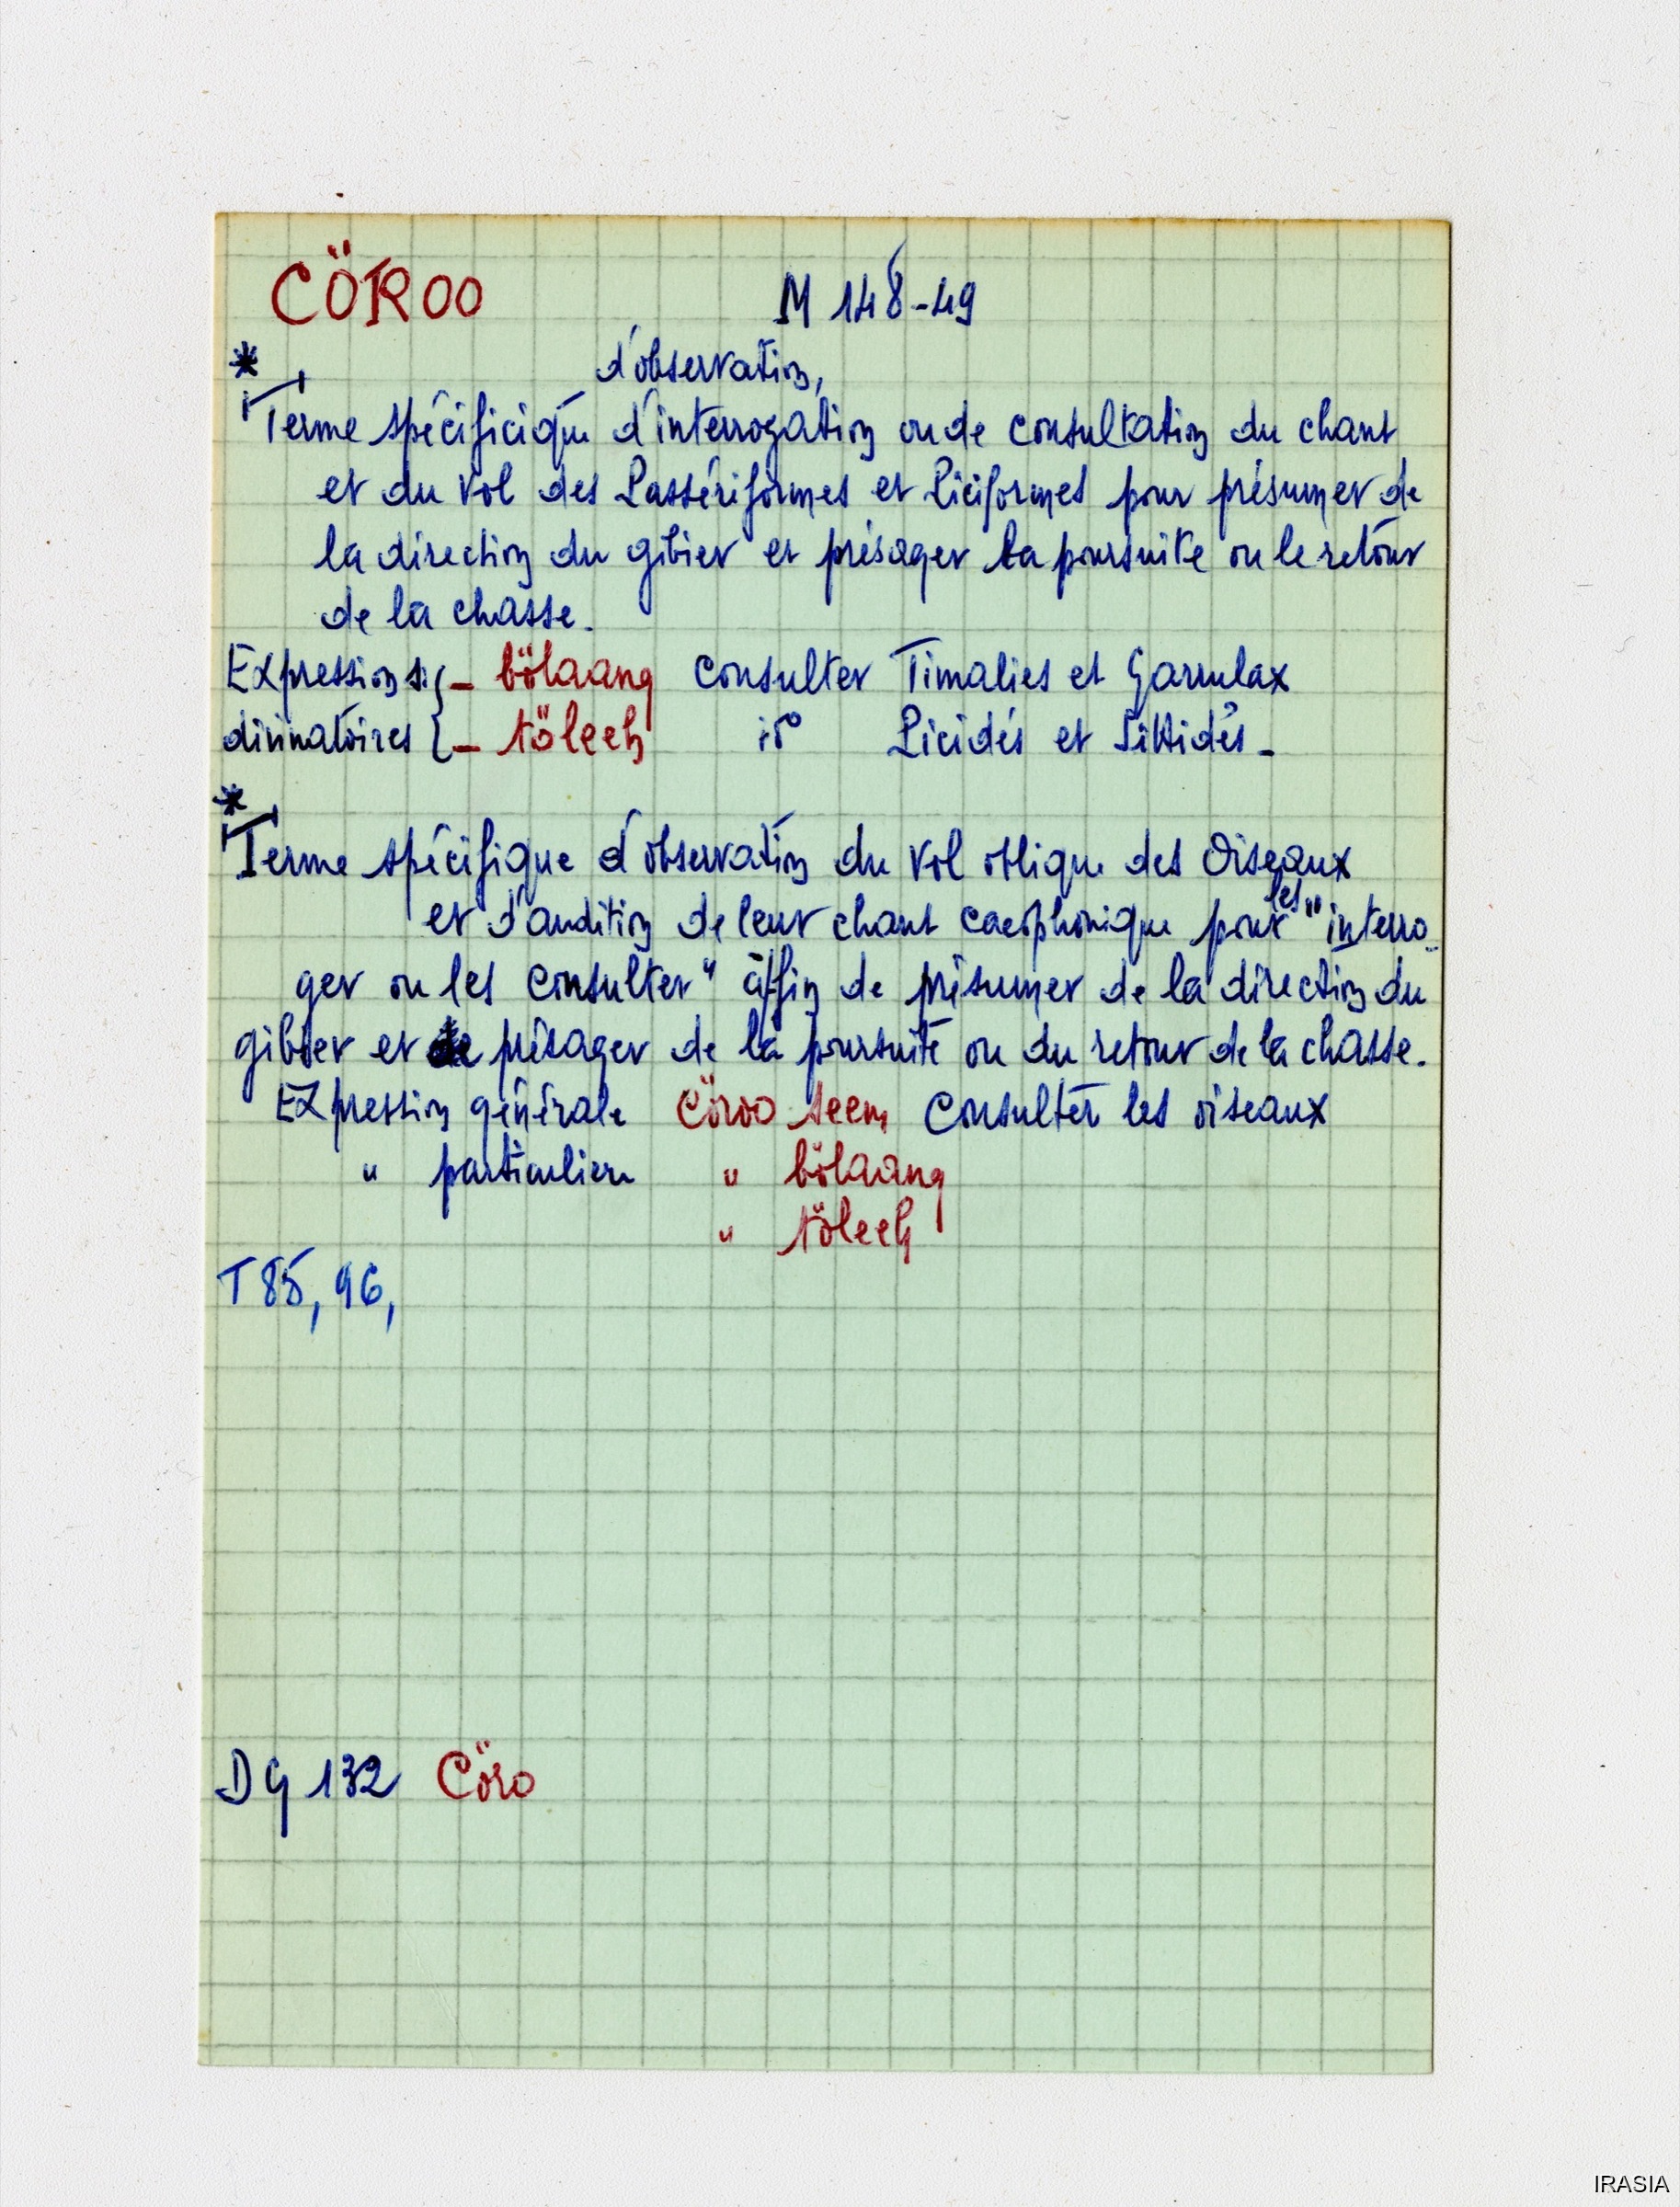 CÖROO M 148-49
* d'observation,
Terme spécificique d'interrogation ou de consultation du chant
et du vol des Passériformes et Piciformes pour présumer de
la direction du gibier et présager la poursuite ou le retour
de la chasse.
Expressions { – böläang consulter Timalies et Garrulax
divinatoires { – töleeh id° Picidés et Sittidés –
*
Terme spécifique d'observation du vol oblique des Oiseaux
et d'audition de leur chant cacophonique pour les "interro-
ger ou les consulter" afin de présumer de la direction du
gibier et de présager de la poursuite ou du retour de la chasse.
Expression générale Cöroo seem Consulter les oiseaux
" particulière " bölaang
" töleeh
T 85, 96,
DG 132 Cöro
IRASIA